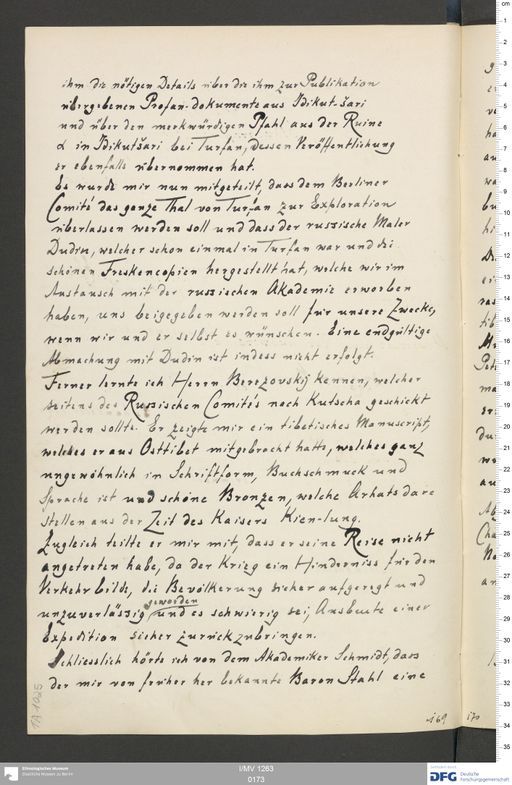 ihm die nötigen Details über die ihm zur Publikation
übergebenen Profan-dokumente aus Idikut-šari
und über den merkwürdigen Pfahl aus der Ruine
α in Idikutšari bei Turfan, dessen Veröffentlichung
er ebenfalls übernommen hat.
Es wurde mir nun mitgeteilt, dass dem Berliner
Comité das ganze Thal von Turfan zur Exploration
überlassen werden soll und dass der russische Maler
Dudin, welcher schon einmal in Turfan war und die
schönen Freskencopien hergestellt hat, welche wir im
Austausch mit der russischen Akademie erworben
haben, uns beigegeben werden soll für unsere Zwecke,
wenn wir und er selbst es wünschen. Eine endgültige
Abmachung mit Dudin ist indess nicht erfolgt.
Ferner lernte ich Herrn Berezovskij kennen, welcher
seitens des Russischen Comités nach Kutscha geschickt
werden sollte. Er zeigte mir ein tibetisches Manuscript,
welches er aus Osttibet mitgebracht hatte, welches ganz
ungewöhnlich in Schriftform, Buchschmuck und
Sprache ist und schöne Bronzen, welche Arhats dar=
stellen aus der Zeit des Kaisers Kien-lung.
Zugleich teilte er mir mit, dass er seine Reise nicht
angetreten habe, da der Krieg ein Hinderniss für den
Verkehr bilde, die Bevölkerung sicher aufgeregt und
unzuverlässig geworden und es schwierig sei, Ausbeute einer
Expedition sicher zurückzubringen.
Schliesslich hörte ich von dem Akademiker Schmidt, dass
der mir von früher her bekannte Baron Stahl eine
169 170
TA 1025
Ethnologisches Museum
Staatliche Museen zu Berlin
I/MV 1263
0173
DFG Deutsche
Forschungsgemeinschaft